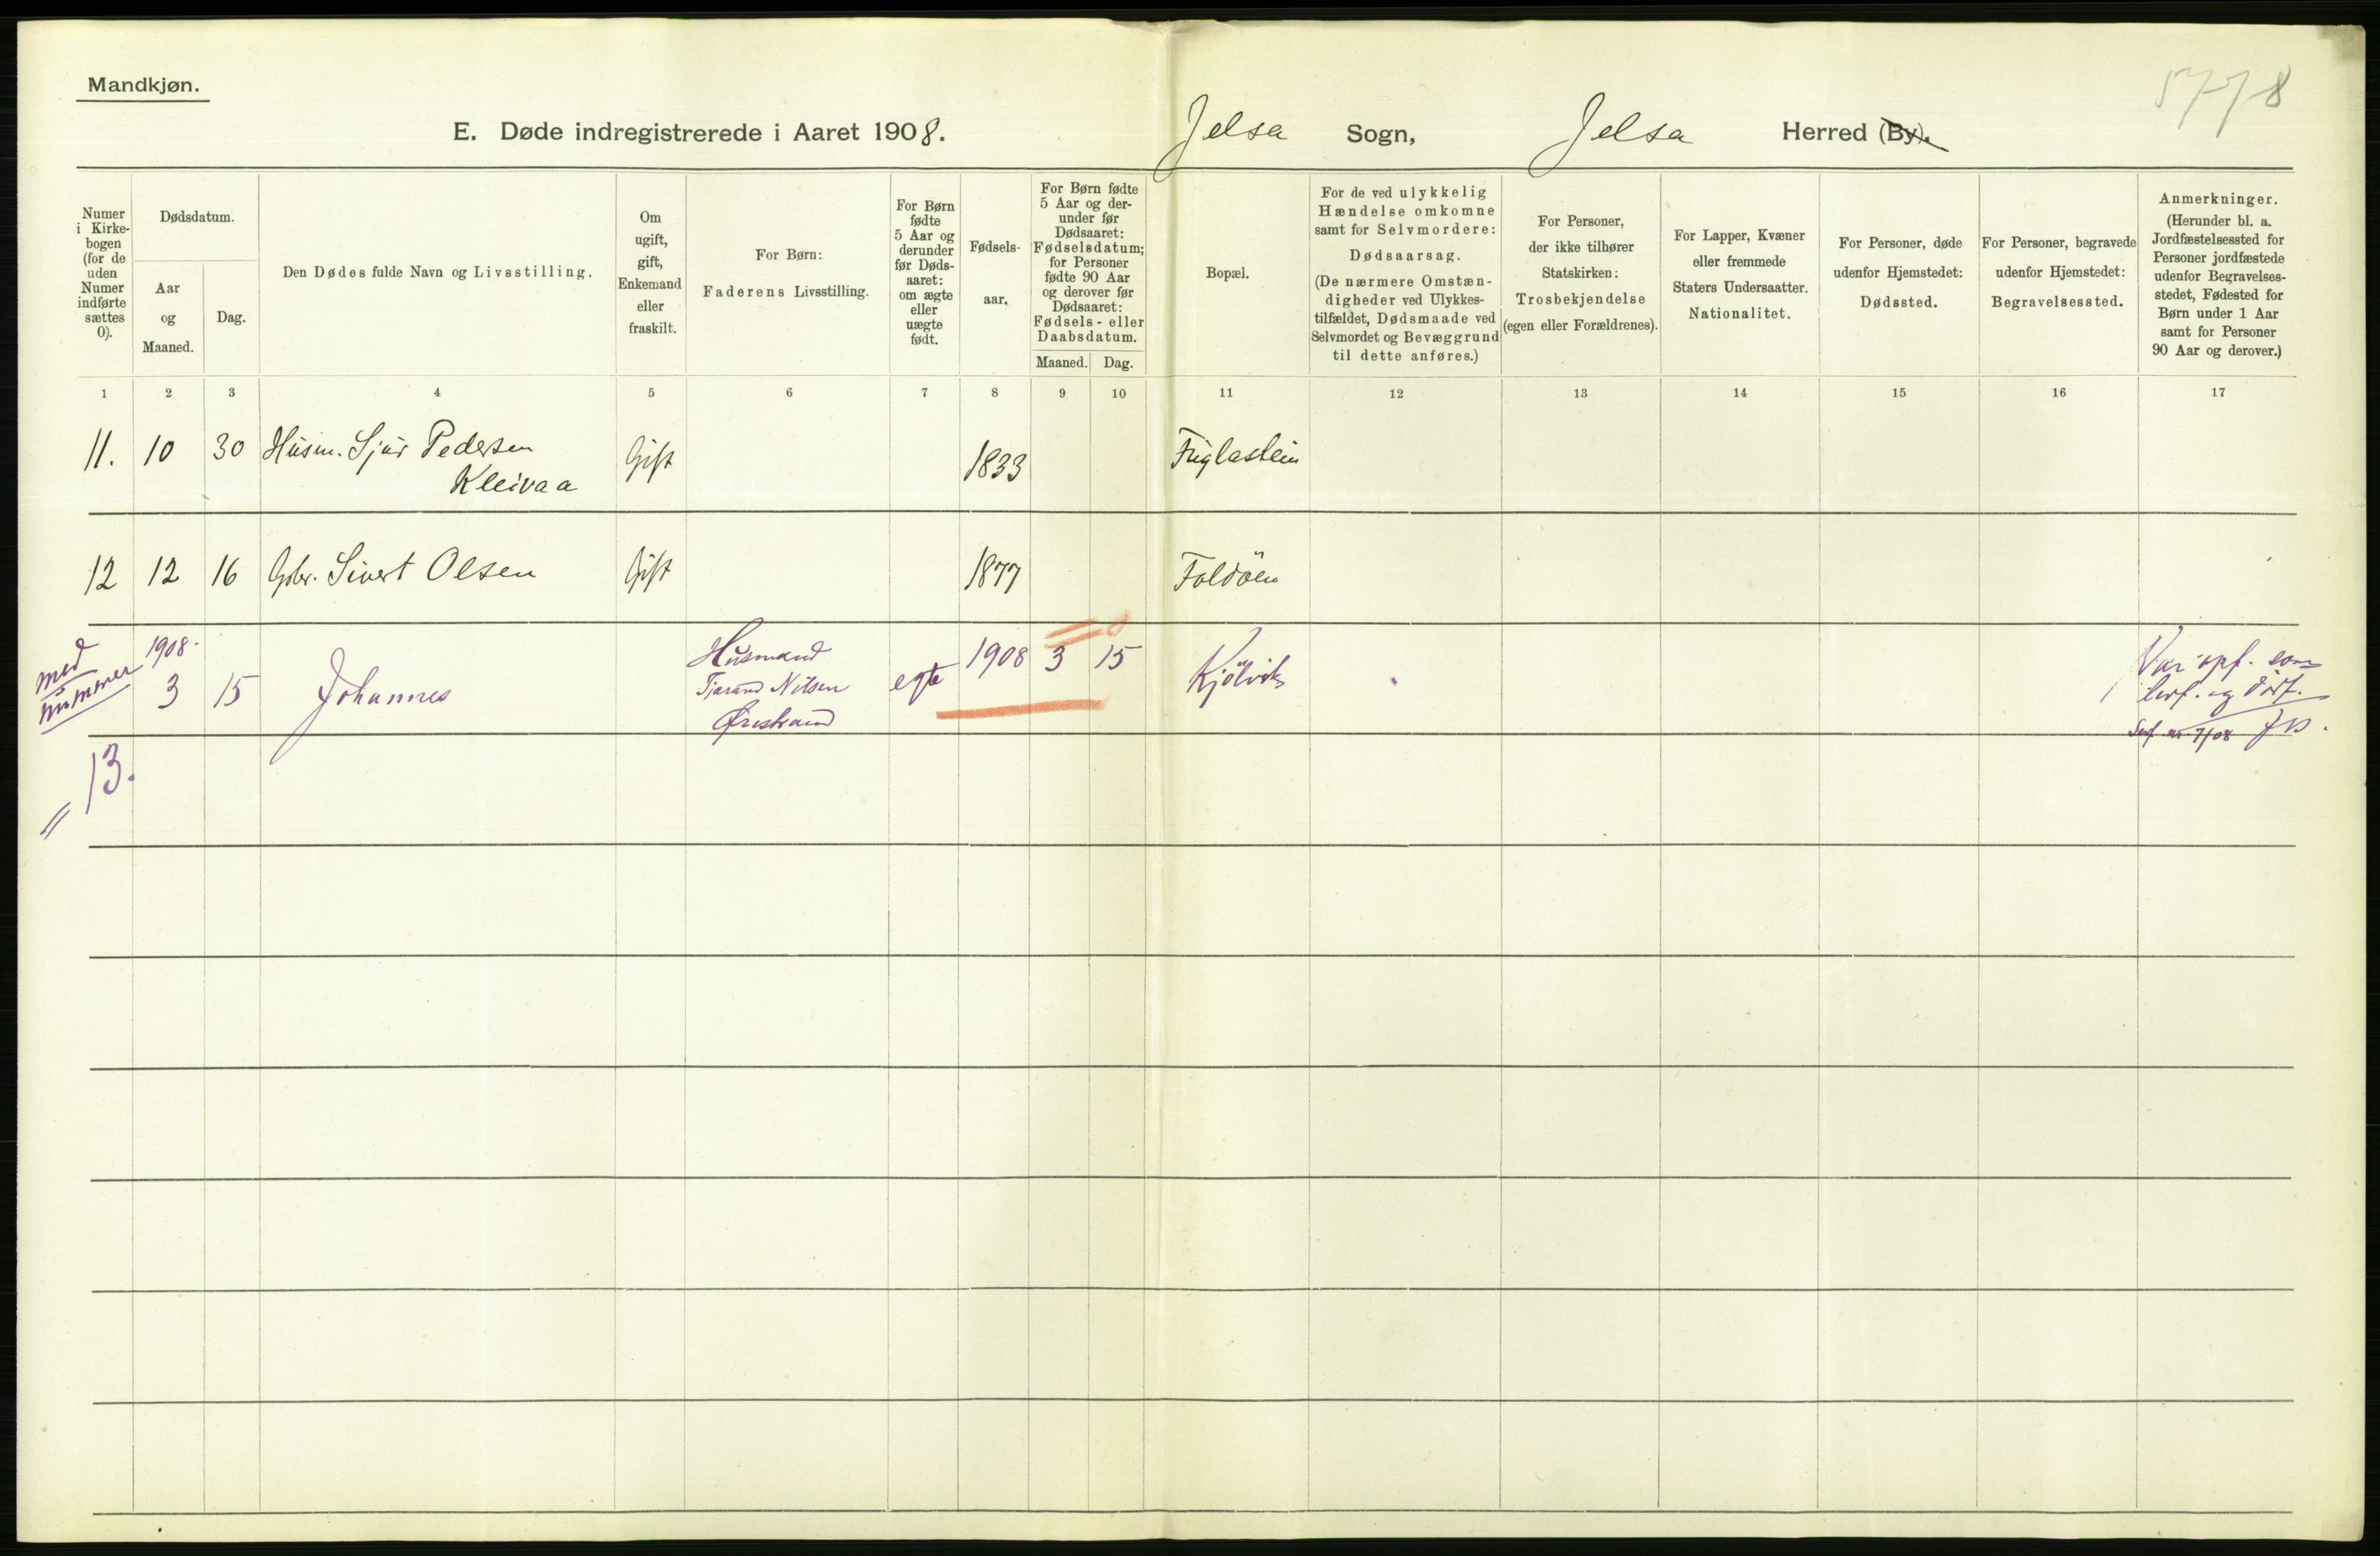 Mandkjøn.
5778
E. Døde indregistrerede i Aaret 1908. Jelsa Sogn, Jelsa Herred (By).
Numer i Kirke-bogen (for de uden Numer indførte sættes 0).
Dødsdatum.
Aar og Maaned.
Dag.
Den Dødes fulde Navn og Livsstilling.
Om ugift, gift, Enkemand eller fraskilt.
For Børn: Faderens Livsstilling.
For Børn fødte 5 Aar og derunder før Døds-aaret: om ægte eller uægte født.
Fødsels-aar.
For Børn fødte 5 Aar og der-under før Dødsaaret: Fødselsdatum; for Personer fødte 90 Aar og derover før Dødsaaret: Fødsels- eller Daabsdatum.
Maaned. Dag.
Bopæl.
For de ved ulykkelig Hændelse omkomne samt for Selvmordere: Dødsaarsag. (De nærmere Omstæn-digheder ved Ulykkes-tilfældet, Dødsmaade ved Selvmordet og Bevæggrund til dette anføres.)
For Personer, der ikke tilhører Statskirken: Trosbekjendelse (egen eller Forældrenes).
For Lapper, Kvæner eller fremmede Staters Undersaatter. Nationalitet.
For Personer, døde udenfor Hjemstedet: Dødssted.
For Personer, begravede udenfor Hjemstedet: Begravelsessted.
Anmerkninger. (Herunder bl. a. Jordfæstelsessted for Personer jordfæstede udenfor Begravelses-stedet, Fødested for Børn under 1 Aar samt for Personer 90 Aar og derover.)
1 2 3 4 5 6 7 8 9 10 11 12 13 14 15 16 17
11. 10 30 Husm. Sjur Pedersen Gift 1833 Fuglastein
Kleivaa
12 12 16 Gbr. Sivert Olsen Gift 1877 Foldöen
med nummer
1908.
3 15 Johannes
Husmand
Tjerand Nilsen
Ørestrand
egte 1908 3 15 Kjölvik
Var opf. som
levf. og dödf.
nr 7/08
13.